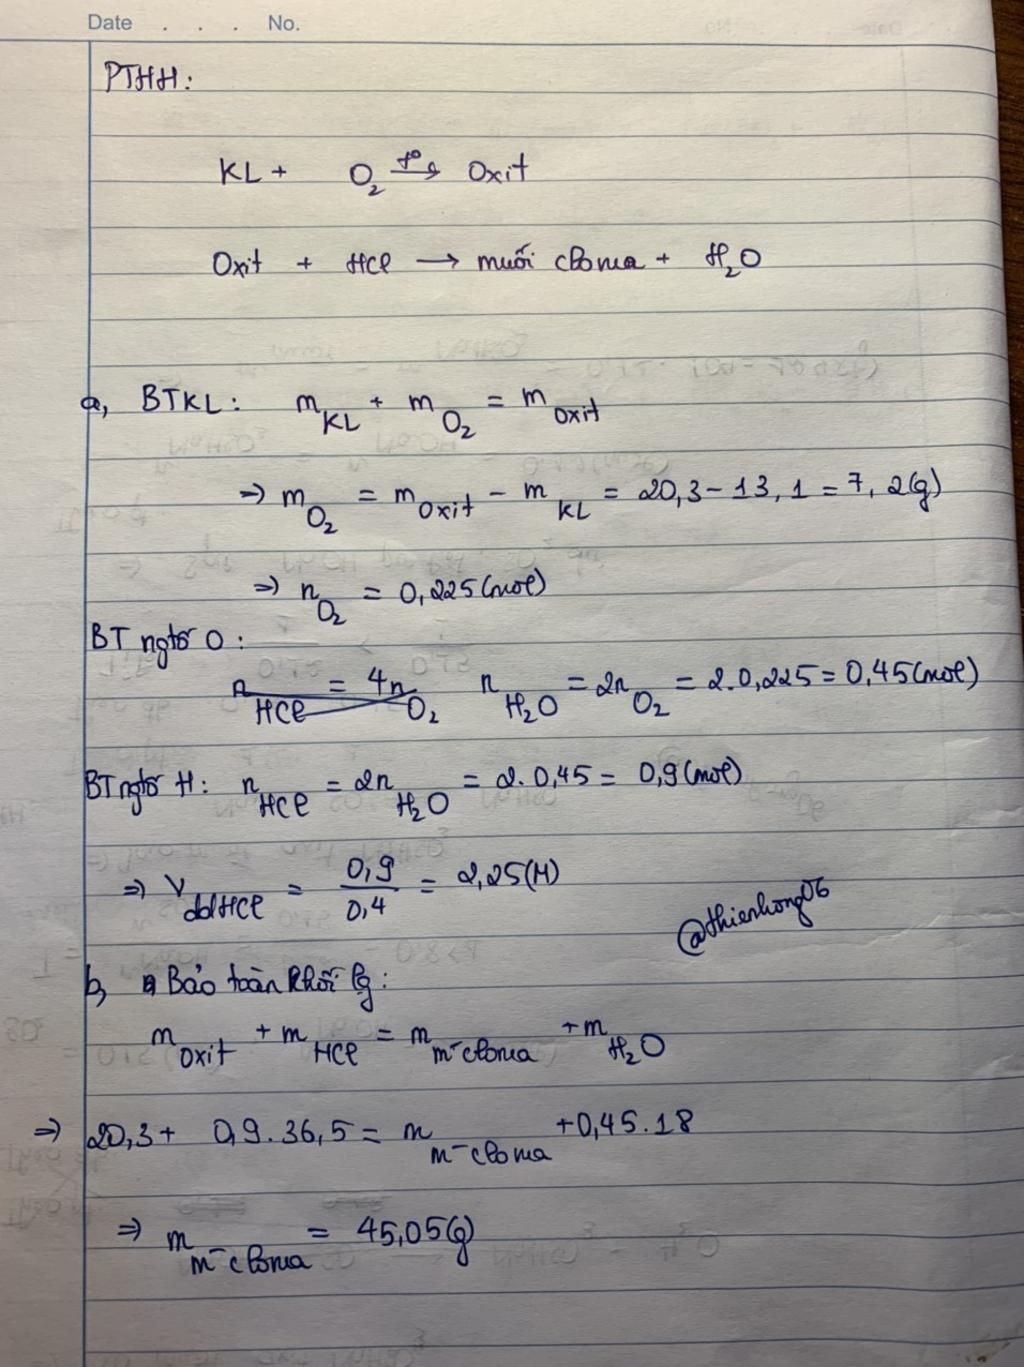 Date . . . No.
PTHH:
KL + O₂ →(t°) Oxit
Oxit + HCl → muối clorua + H₂O
a, BTKL: m_KL + m_O₂ = m_oxit
=> m_O₂ = m_oxit - m_KL = 20,3 - 13,1 = 7,2(g)
=> n_O₂ = 0,225 (mol)
BT ngtố O:
n_HCl = 4n_O₂ n_H₂O = 2n_O₂ = 2.0,225 = 0,45(mol)
BT ngtố H: n_HCl = 2n_H₂O = 2.0,45 = 0,9(mol)
=> V_ddHCl = 0,9/0,4 = 2,25(M)
@thienhong06
b, Bảo toàn khối lg:
m_oxit + m_HCl = m_m~clorua + m_H₂O
=> 20,3 + 0,9.36,5 = m_m~clorua + 0,45.18
=> m_m~clorua = 45,05(g)